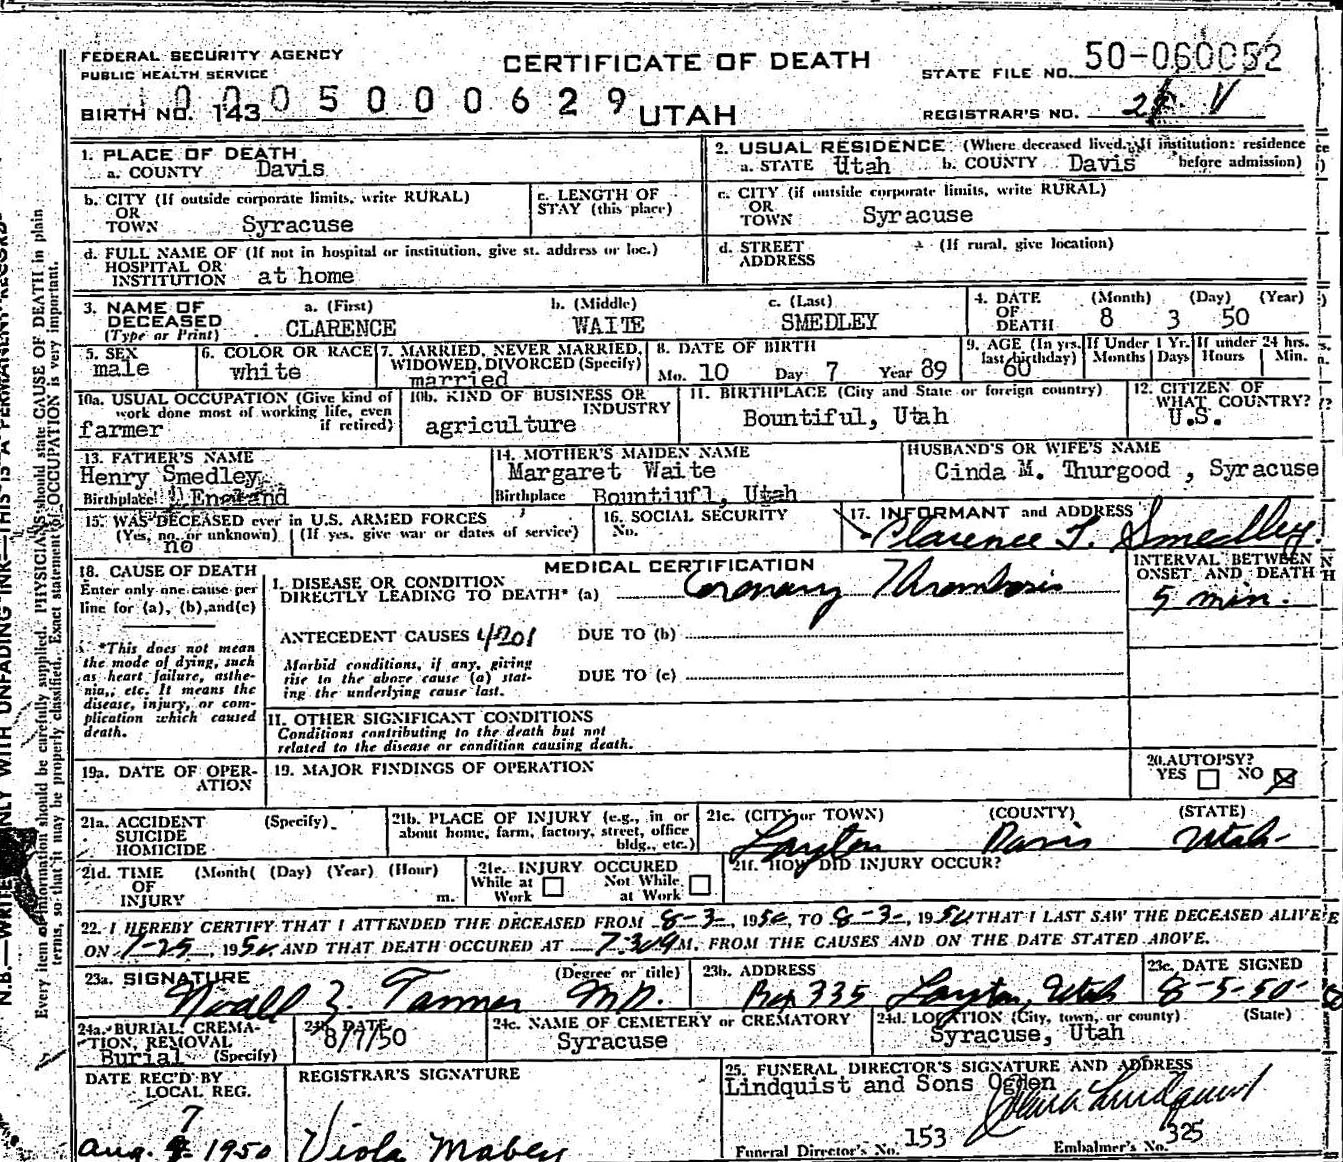 FEDERAL SECURITY AGENCY
PUBLIC HEALTH SERVICE
CERTIFICATE OF DEATH
STATE FILE NO. 50-060052
1 0 0 0 5 0 0 0 6 2 9
BIRTH NO. 143
UTAH
REGISTRAR'S NO.
1. PLACE OF DEATH
a. COUNTY Davis
2. USUAL RESIDENCE (Where deceased lived. If institution: residence before admission)
a. STATE Utah b. COUNTY Davis
b. CITY (If outside corporate limits, write RURAL)
OR
TOWN Syracuse
c. LENGTH OF
STAY (this place)
c. CITY (if outside corporate limits, write RURAL)
OR
TOWN Syracuse
d. FULL NAME OF (If not in hospital or institution, give st. address or loc.)
HOSPITAL OR
INSTITUTION at home
d. STREET (If rural, give location)
ADDRESS
3. NAME OF
DECEASED
(Type or Print)
a. (First) b. (Middle) c. (Last)
CLARENCE WAITE SMEDLEY
4. DATE (Month) (Day) (Year)
OF
DEATH 8 3 50
5. SEX
male
6. COLOR OR RACE
white
7. MARRIED, NEVER MARRIED,
WIDOWED, DIVORCED (Specify)
married
8. DATE OF BIRTH
Mo. 10 Day 7 Year 89
9. AGE (In yrs. last birthday) If Under 1 Yr. If under 24 hrs.
Months Days Hours Min.
60
10a. USUAL OCCUPATION (Give kind of
work done most of working life, even
if retired)
farmer
10b. KIND OF BUSINESS OR
INDUSTRY
agriculture
11. BIRTHPLACE (City and State or foreign country)
Bountiful, Utah
12. CITIZEN OF
WHAT COUNTRY?
U.S.
13. FATHER'S NAME
Henry Smedley
Birthplace England
14. MOTHER'S MAIDEN NAME
Margaret Waite
Birthplace Bountiufl, Utah
HUSBAND'S OR WIFE'S NAME
Cinda M. Thurgood , Syracuse
15. WAS DECEASED ever in U.S. ARMED FORCES
(Yes, no, or unknown) (If yes, give war or dates of service)
no
16. SOCIAL SECURITY
No.
17. INFORMANT and ADDRESS
Clarence T. Smedley
18. CAUSE OF DEATH
Enter only one cause per
line for (a), (b), and (c)
*This does not mean
the mode of dying, such
as heart failure, asthe-
nia, etc. It means the
disease, injury, or com-
plication which caused
death.
MEDICAL CERTIFICATION
I. DISEASE OR CONDITION
DIRECTLY LEADING TO DEATH* (a) Coronary Thrombosis
INTERVAL BETWEEN
ONSET AND DEATH
5 min.
ANTECEDENT CAUSES 4201 DUE TO (b)
Morbid conditions, if any, giving
rise to the above cause (a) stat-
ing the underlying cause last.
DUE TO (c)
II. OTHER SIGNIFICANT CONDITIONS
Conditions contributing to the death but not
related to the disease or condition causing death.
19a. DATE OF OPER-
ATION
19. MAJOR FINDINGS OF OPERATION
20. AUTOPSY?
YES NO
21a. ACCIDENT (Specify)
SUICIDE
HOMICIDE
21b. PLACE OF INJURY (e.g., in or
about home, farm, factory, street, office
bldg., etc.)
21c. (CITY or TOWN) (COUNTY) (STATE)
Layton Davis Utah
21d. TIME (Month( (Day) (Year) (Hour)
OF
INJURY m.
21e. INJURY OCCURED
While at Work Not While at Work
21f. HOW DID INJURY OCCUR?
22. I HEREBY CERTIFY THAT I ATTENDED THE DECEASED FROM 8-3-, 1950, TO 8-3-, 1950 THAT I LAST SAW THE DECEASED ALIVE
ON 7-25, 1950. AND THAT DEATH OCCURED AT M. FROM THE CAUSES AND ON THE DATE STATED ABOVE.
23a. SIGNATURE (Degree or title)
Noall Z. Tanner M.D.
23b. ADDRESS
Box 335 Layton, Utah
23c. DATE SIGNED
8-5-50
24a. BURIAL, CREMA-
TION, REMOVAL
Burial (Specify)
24b. DATE
8/7/50
24c. NAME OF CEMETERY or CREMATORY
Syracuse
24d. LOCATION (City, town, or county) (State)
Syracuse, Utah
DATE REC'D BY
LOCAL REG.
7
Aug. 1950
REGISTRAR'S SIGNATURE
Viola Mabey
25. FUNERAL DIRECTOR'S SIGNATURE AND ADDRESS
Lindquist and Sons Ogden
Funeral Director's No. 153 Embalmer's No. 325
N.B.—WRITE ONLY WITH UNFADING INK—THIS IS A PERMANENT RECORD
Every item of information should be carefully supplied. PHYSICIANS should state CAUSE OF DEATH in plain
terms, so that it may be properly classified. Exact statement of OCCUPATION is very important.